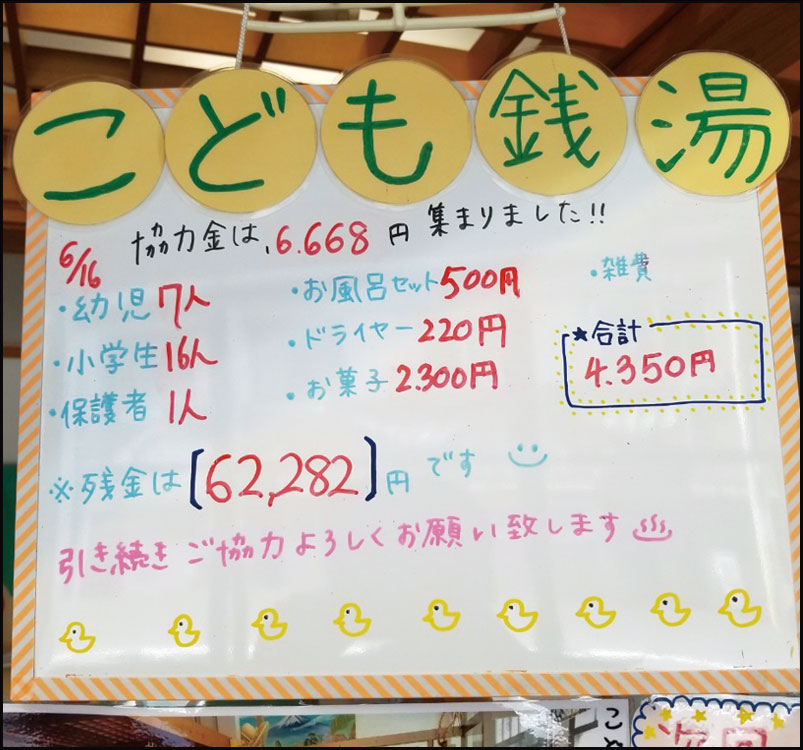 こども銭湯
6/16 協力金は、6.668円 集まりました!!
・幼児 7人
・小学生 16人
・保護者 1人
・お風呂セット 500円
・ドライヤー 220円
・お菓子 2.300円
・雑費
★合計
4.350円
※残金は[62,282]円です
引き続きご協力よろしくお願い致します
こど